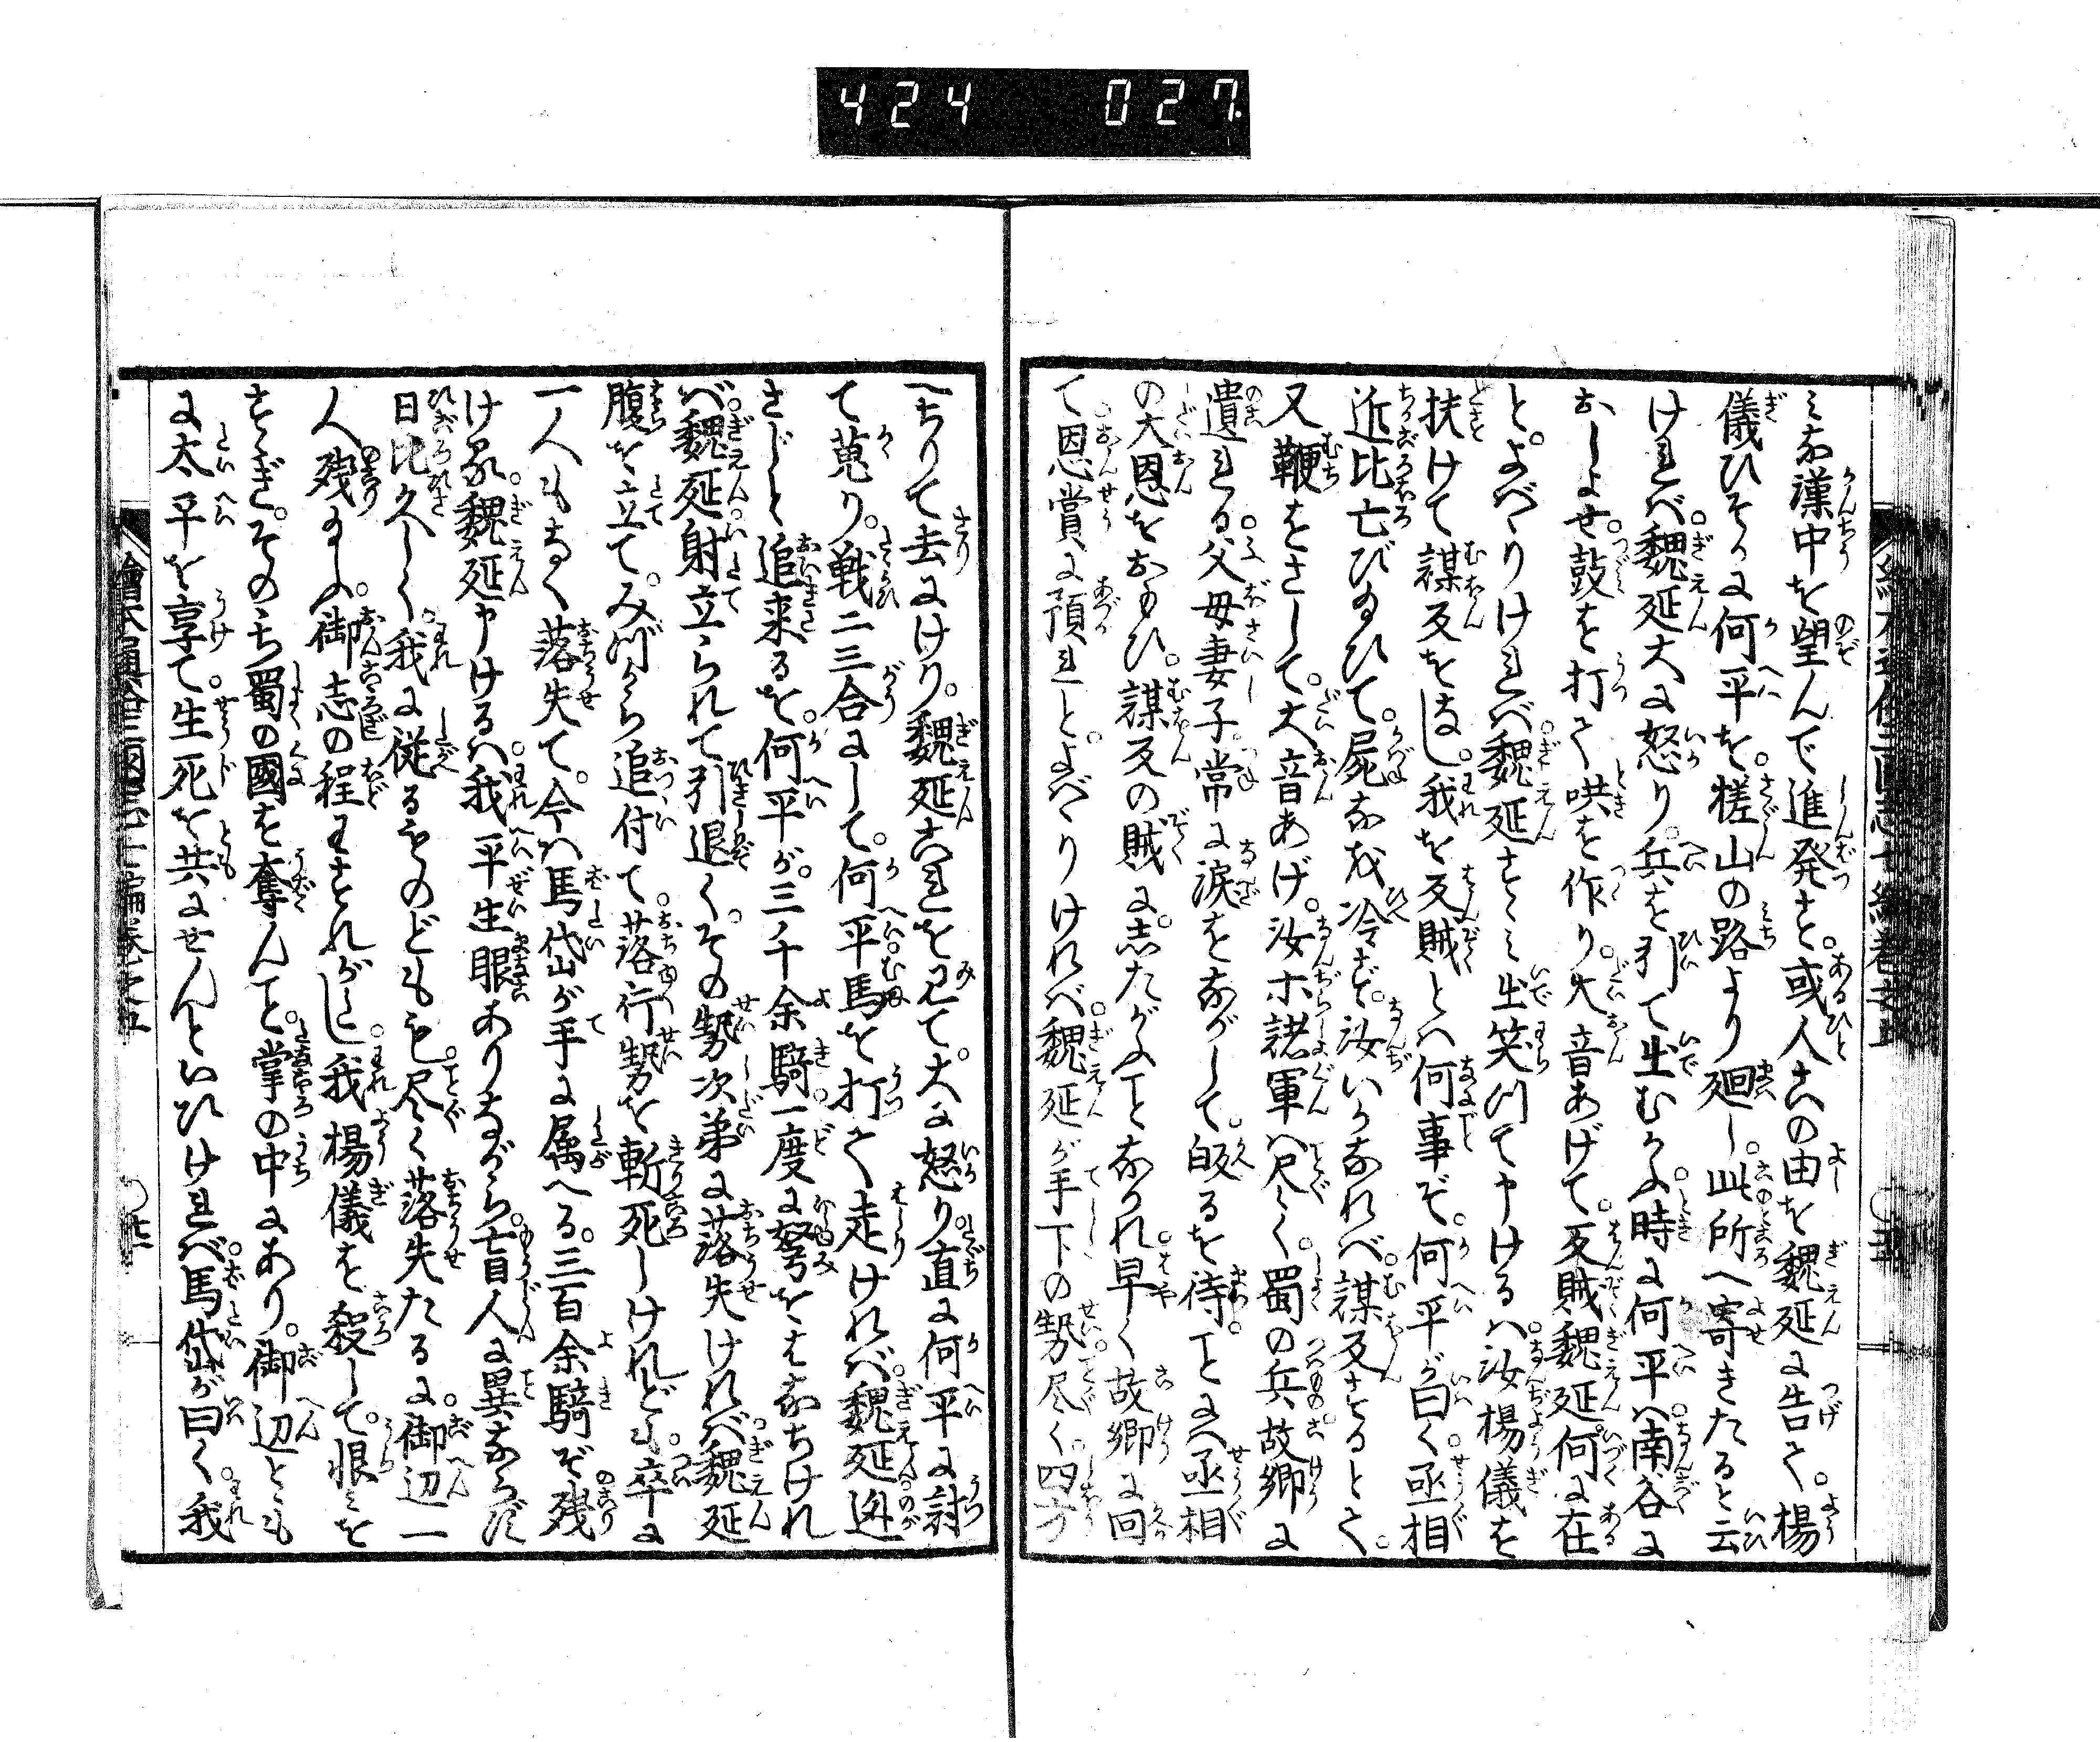 424 027
ミな漢中を望んで進発す。或人此の由を魏延に告て。楊
儀ひそかに何平を。槎山の路より廻し。此所へ寄きたると云
ければ。魏延大に怒り。兵を引て出むかふ。時に何平ハ。南谷に
おしよせ。鼓を打て哄を作り。大音あげて。反賊魏延。何に在
と。よバゝりければ。魏延すゝミ出笑つて申けるハ。汝楊儀を
扶けて謀反をなし。我を反賊とハ何事ぞ。何平が曰く。丞相
近比亡び給ひて。屍なを冷ず。汝いかなれバ。謀反するとて。
又鞭をさして。大音あげ。汝ホ諸軍ハ尽く。蜀の兵。故郷に
遺れる。父母妻子。常に涙をながして。皈るを待。丞相
の大恩をおもひ。謀反の賊に。志たがふことなかれ。早く故郷に回
て。恩賞に預れと。よバゝりけれバ。魏延が手下の勢。尽く。四方
へちりて去にけり。魏延これを見て。大に怒り。直に何平に討
て蒐り。戦二三合にして。何平。馬を打て走けれバ。魏延迯
さじと追来るを。何平が。三千余騎。一度に弩をはなちけれ
バ。魏延。射立られて引退く。その勢次第に落失けれバ。魏延
腹を立て。みづから追付て。落行勢を斬死しけれども。卒に
一人もなく落失て。今ハ馬岱が手に属へる。三百余騎ぞ残
ける。魏延申けるハ。我平生眼ありながら。盲人に異ならず
日比久しく。我に従るものどもも。尽く落失たるに。御辺一
人残給ふ。御志の程わすれがたし。我楊儀を殺して。恨ミを
すゝぎ。そのち蜀の國を奪んこと。掌の中にあり。御辺とも
に太平を享て。生死を共にせんといひければ。馬岱が曰く。我
繪本通俗三國志七編巻之五